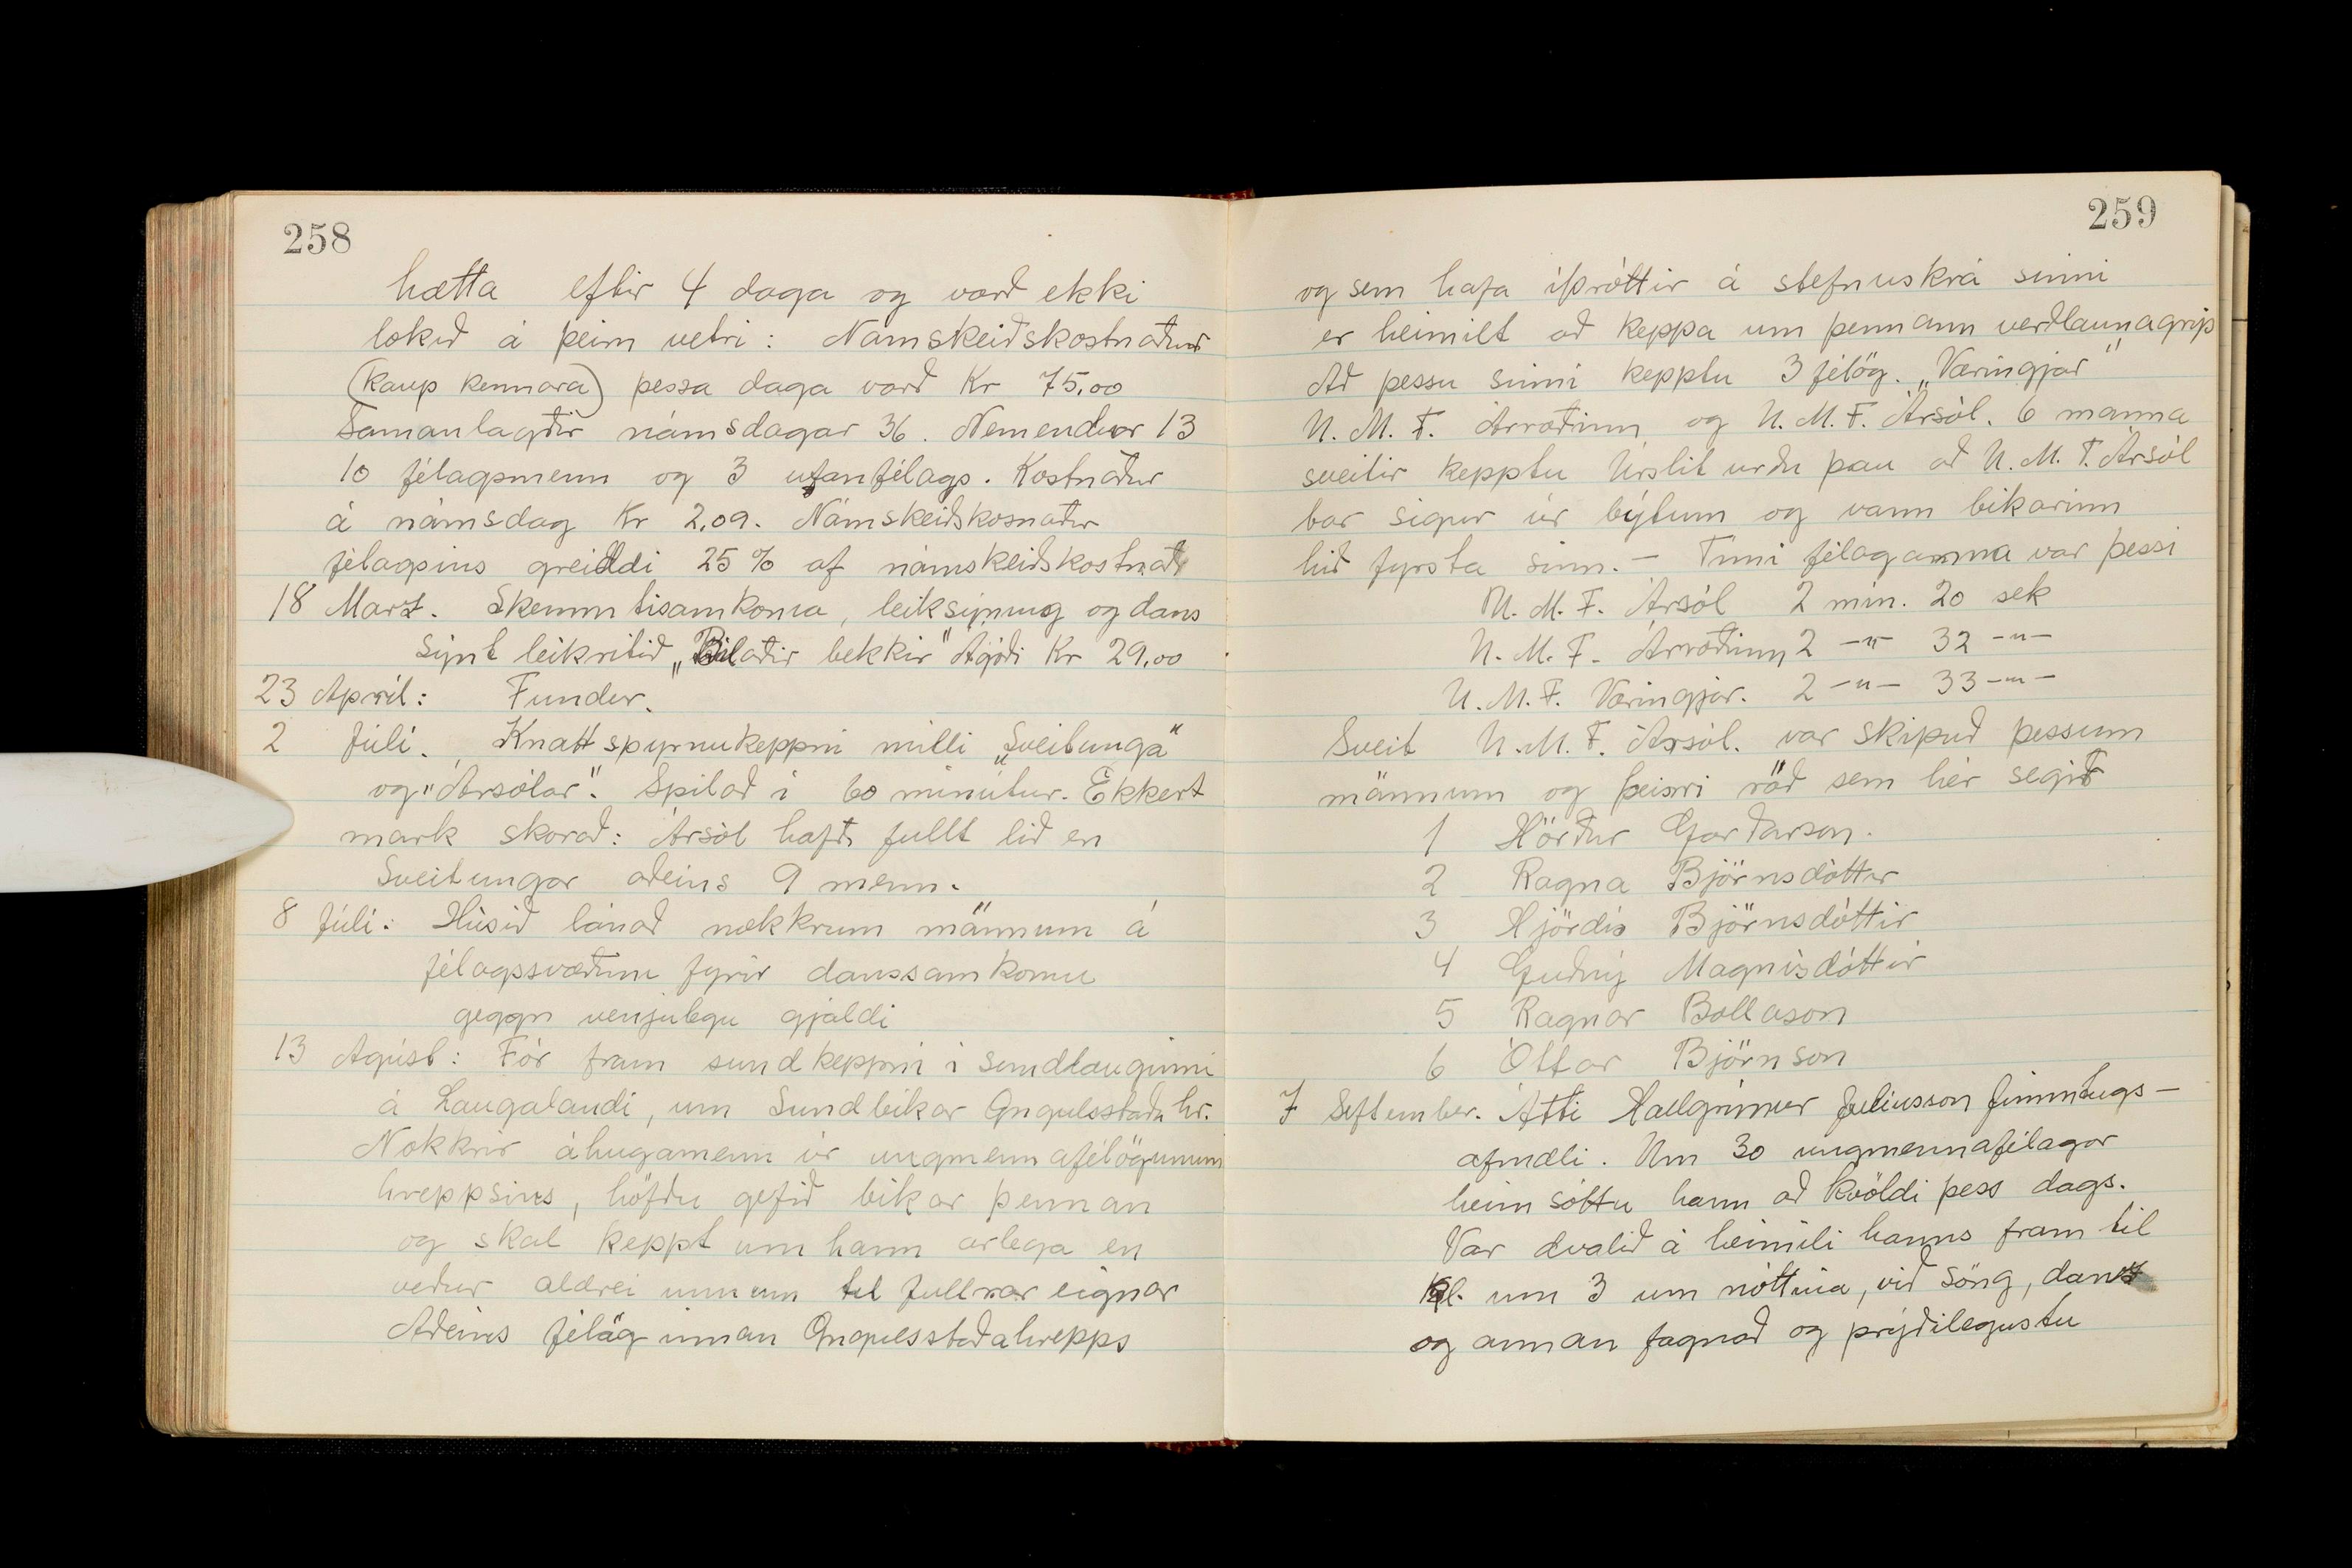 258
hætta eftir 4 daga og varð ekki
lokið á þeim vetri: Námskeiðskostnaður
(kaup kennara) þessa daga varð Kr 75,00
Samanlagðir námsdagar 36. Nemendur 13
10 félagsmenn og 3 utanfélags. Kostnaður
á námsdag Kr 2,09. Námskeiðskosnaður
félagsins greiddi 25% af námskeiðskostnað
18 Marz. Skemmtisamkoma, leiksýning og dans
Sýnt leikritið „Bilaðir bekkir" Ágóði Kr 29,00
23 April: Fundur.
2 Júlí. Knattspyrnukeppni milli „Sveitunga"
og „Ársólar". Spilað í 60 mínútur. Ekkert
mark skorað: Ársól hafði fullt lið en
Sveitungar aðeins 9 menn.
8 Júlí: Húsið lánað nokkrum mönnum á
félagssvæðinu fyrir danssamkomu
geggn venjulegu gjaldi
13 Agúst: Fór fram sundkeppni í sundlauginni
á Laugalandi, um Sundbikar Öngulsstaða hr.
Nokkrir áhugamenn úr ungmennafélögunum
hreppsins, höfðu gefið bikar þennan
og skal keppt um hann árlega en
veður aldrei unninn til fullrar eignar
Aðeins félög innan Öngulsstaðahrepps
259
og sem hafa íþróttir á stefnuskrá sinni
er heimilt að keppa um þennann verðlaunagrip
Að þessu sinni kepptu 3 félög. „Væringjar"
U. M. F. Árroðinn og U. M. F. Ársól. 6 manna
sveitir kepptu Úrslit urðu þau að U. M. F. Ársól
bar sigur úr býtum og vann bikarinn
hið fyrsta sinn. – Tími félaganna var þessi
U. M. F. Ársól 2 mín. 20 sek
U. M. F. Árroðinn 2 –"– 32 –"–
U. M. F. Væringjar. 2 –"– 33 –"–
Sveit U. M. F. Ársól. var skipuð þessum
mönnum og þeirri röð sem hér segir
1 Hörður Garðarson.
2 Ragna Björnsdóttir
3 Hjördís Björnsdóttir
4 Guðný Magnúsdóttir
5 Ragnar Bollason
6 Óttar Björnson
7 September. Átti Hallgrímur Júlíusson fimmtugs–
afmæli. Um 30 ungmennafélagar
heimsóttu hann að kvöldi þess dags.
Var dvalið á heimili hanns fram til
Kl. um 3 um nóttina, við söng, danz
og annan fagnað og prýðilegustu